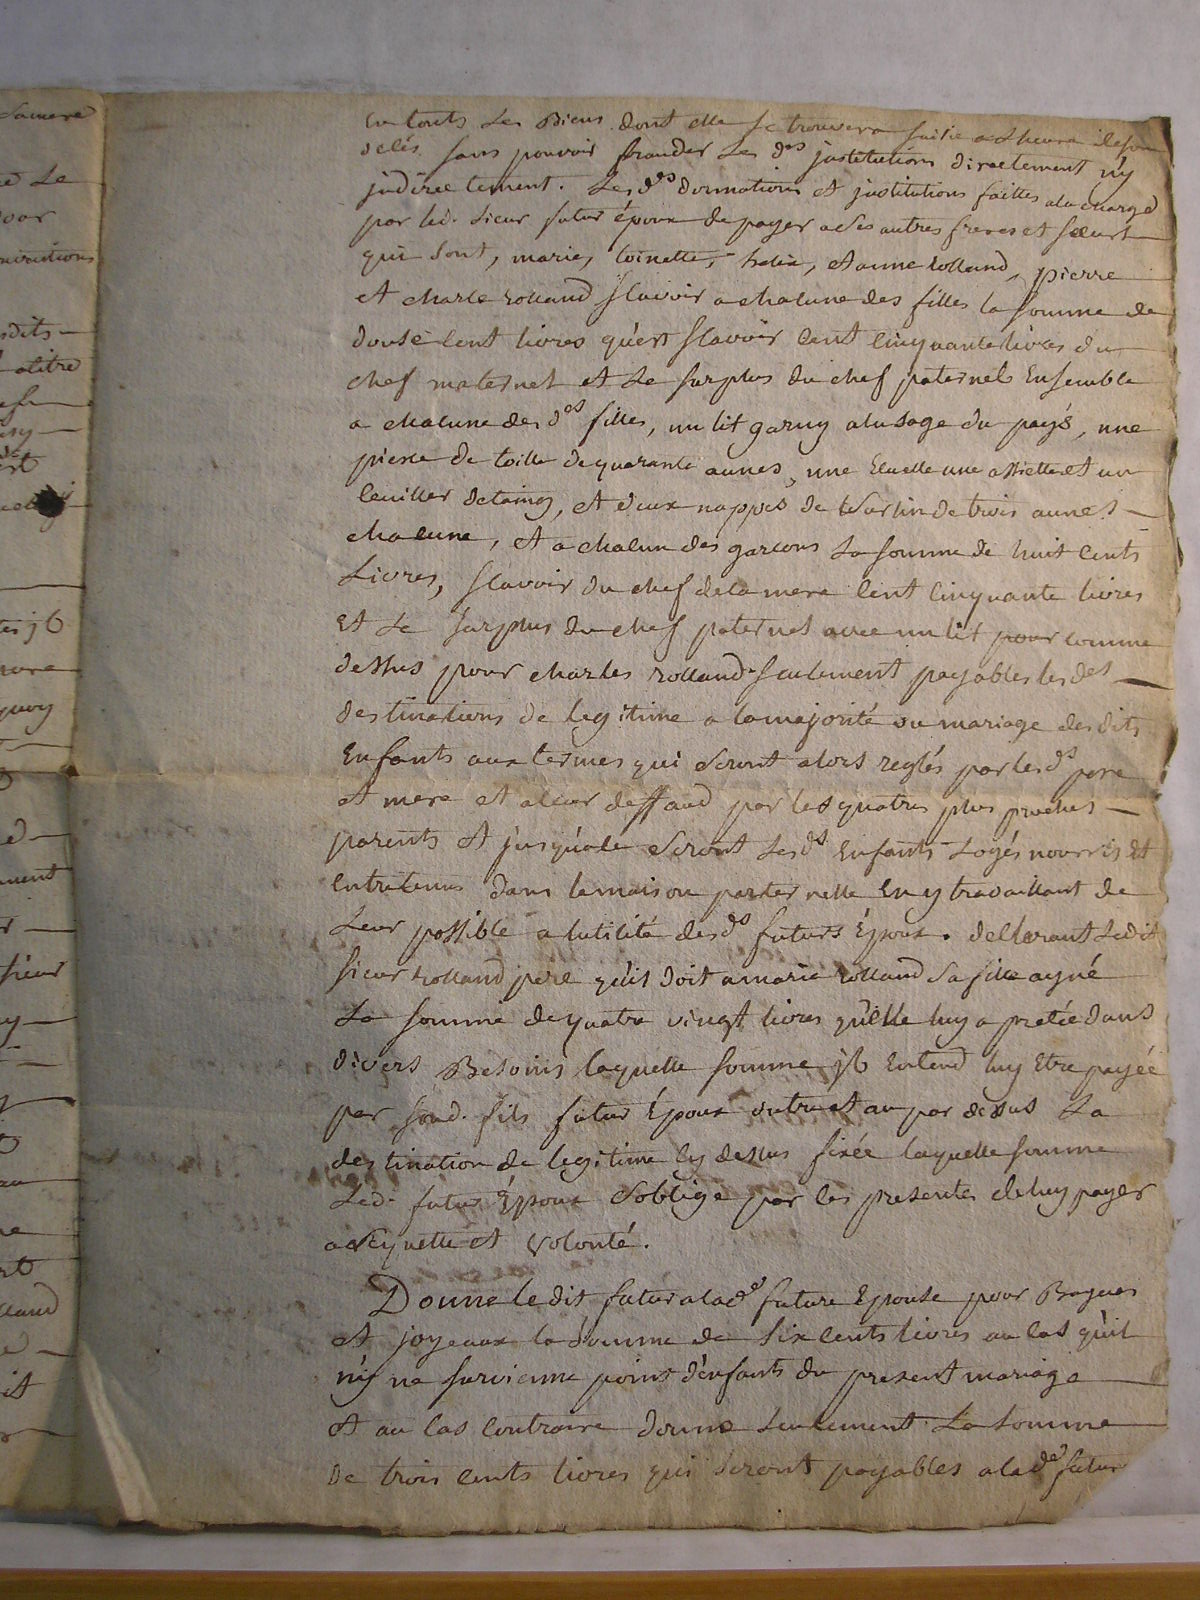 En touts Les Biens dont elle se trouvera saisie a Lheure deson
deces sans pouvoir frauder Les des institutions directement n'y
jndirectement. Les des donnations et institutions faittes ala charge
par led. sieur futur époux de payer ases autres freres et soeurs
qui sont, marie, toinette, helix, et anne rolland, pierre
et charle rolland scavoir a chacune des filles la somme de
douse cent livres qu'est scavoir cent cinquante livres du
chef maternel et Le surplus du chef paternel Ensemble
a chacune des des filles, un lit garny alusage du pays, une
piece de toille de quarante aunes, une Ecuelle une assiette et un
Cuillier detaing, et deux nappes de de trois aunes
chacune, et a chacun des garcons La somme de huit cents
Livres, scavoir du chef dela mere cent cinquante livres
et Le surplus du chef paternel avec un lit comme
dessus pour charles rolland seulement payables les des
destinations de legitime a lamajorité ou mariage des dits
Enfants aux termes qui seront alors reglés par les ds pere
et mere et aleur deffaud par les quatres plus proches
parents et jusquale seront Lesds Enfants Logés nourris et
entretenus dans lamaison paternelle En y travaillant de
Leur possible a lutilité des ds futurs Époux. declarant Ledit
sieur rolland pere quil doit amarie rolland sa fille aynée
La somme dequatre vingt livres qu'elle luy a pretée dans
divers Besoins laquelle somme jl entend luy Etre payée
par sond. fils futur Époux outre et au par dessus La
destination de legitime cy dessus fixée laquelle somme
Led. futur Époux s'oblige par les presentes deluy payer
a sa requette et volonté.
Donne ledit futur alade future Epouse pour Bagues
et joyeaux la somme de six cents livres au cas qu'il
n'y ne survienne point d'enfants du present mariage
et au cas contraire donne seulement La somme
de trois cents livres qui seront payables alade futur